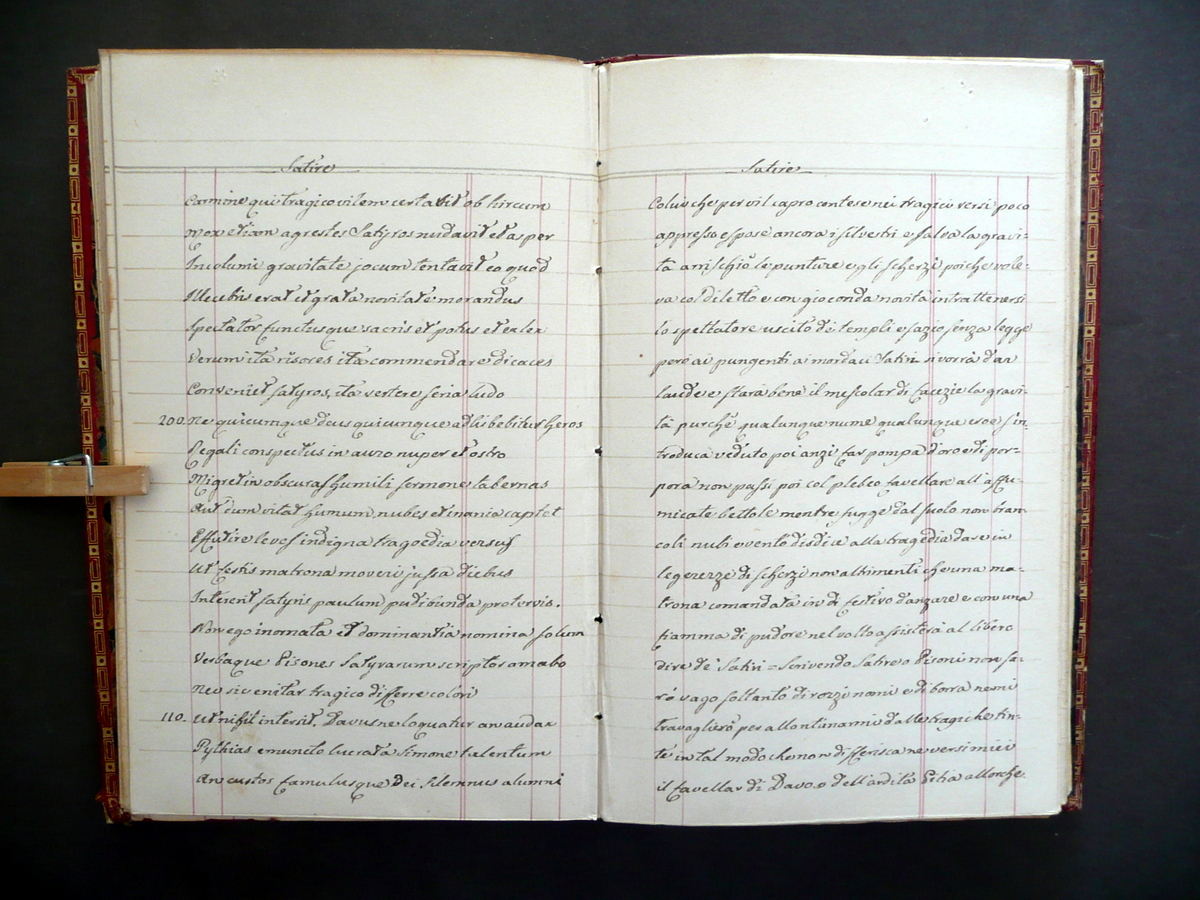 Satire
Carmine qui tragico vilem certavit ob hircum
mox etiam agrestes Satyros nudavit et asper
Incolumi gravitate jocum tentavit eo quod
Illecebris erat et grata novitate morandus
Spectator functusque sacris et potus et exlex
Verum ita risores ita commendare dicaces
Conveniet satyros, ita vertere seria ludo
200. Ne quicumque deus quicumque adhibebitur heros
Regali conspectus in auro nuper et ostro
Migret in obscuras humili sermone tabernas
Aut dum vitat humum, nubes et inania captet
Effutire leves indigna tragoedia versus
Ut festis matrona moveri jussa diebus
Intererit satyris paulum pudibunda protervis.
Non ego inornata et dominantia nomina solum
Verbaque Pisones Satyrarum scriptor amabo
Nec sic enitar tragico differre colori
110. Ut nihil intersit, Davus ne loquatur an audax
Pythias emuncto lucrata Simone talentum
An custos famulusque Dei Silemnus alumni
Satire
Colui che per vil capro contese nei tragici versi poco
appresso espose ancora i silvestri e salva la gravi-
tà arrischiò le punture e gli scherzi poiche vole-
va col diletto e con gioconda novità intrattenersi
lo spettatore uscito dè templi e sazio senza legge
però ai pungenti ai mordaci Satiri si vorrà dar
laude e starà bene il mescolar di facezie la gravi-
tà purchè qualunque nume qualunque eroe s'in-
troduca veduto poi anzi far pompa d'oro e di por-
pora non passi poi col plebeo favellare all'affu-
micate bettole mentre fugge dal suolo non bran
coli nubi e vento disdice alla tragedia dare in
legerezze di scherzi non altrimenti che una ma-
trona comandata in dì festivo danzare e con una
fiamma di pudore nel volto assisterà al libero
dire de' Satiri = Scrivendo Satire o Pisoni non sa-
rò vago soltanto di rozzi nomi e di borra ne mi
travaglierò per allontanarmi dalle tragiche tin-
te in tal modo che non differisca ne versi miei
il favellar di Davo, o dell'ardita Pitia allorche